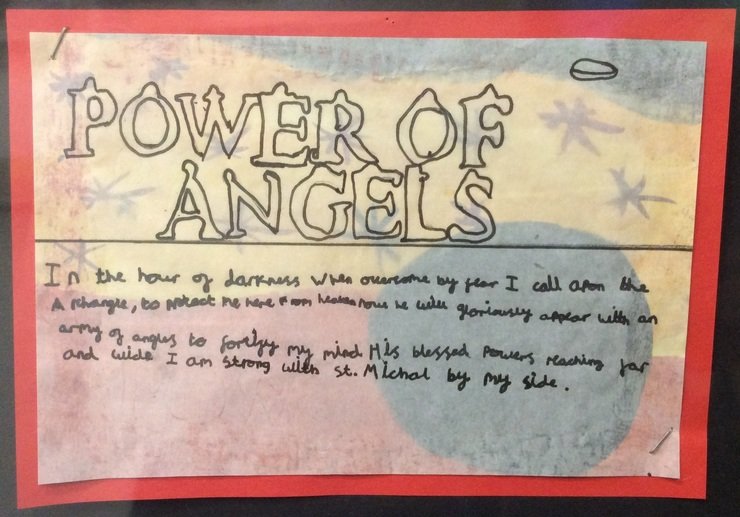 POWER OF
ANGELS
In the hour of darkness when overcome by fear I call apon the
A rchangle, to protect me here from heaven now he will gloriously appear with an
army of angles to fortify my mind His blessed powers reaching far
and wide I am strong with st. Michal by my side.